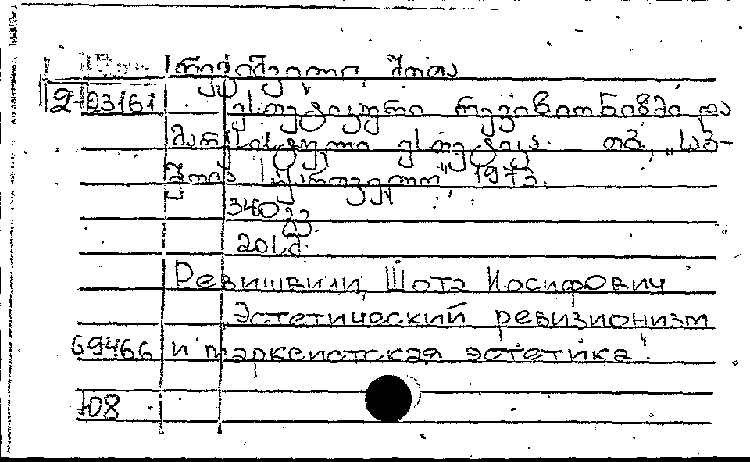 რევიშვილი, შოთა
2 23161 ესთეტიკური რევიზიონიზმი და
მარქსისტული ესთეტიკა. თბ., „საბ-
ჭოთა საქართველო", 1973.
340 გვ.
20 სმ.
Ревишвили, Шота Иосифович
Эстетический ревизионизм
69466 и марксистская эстетика.
108